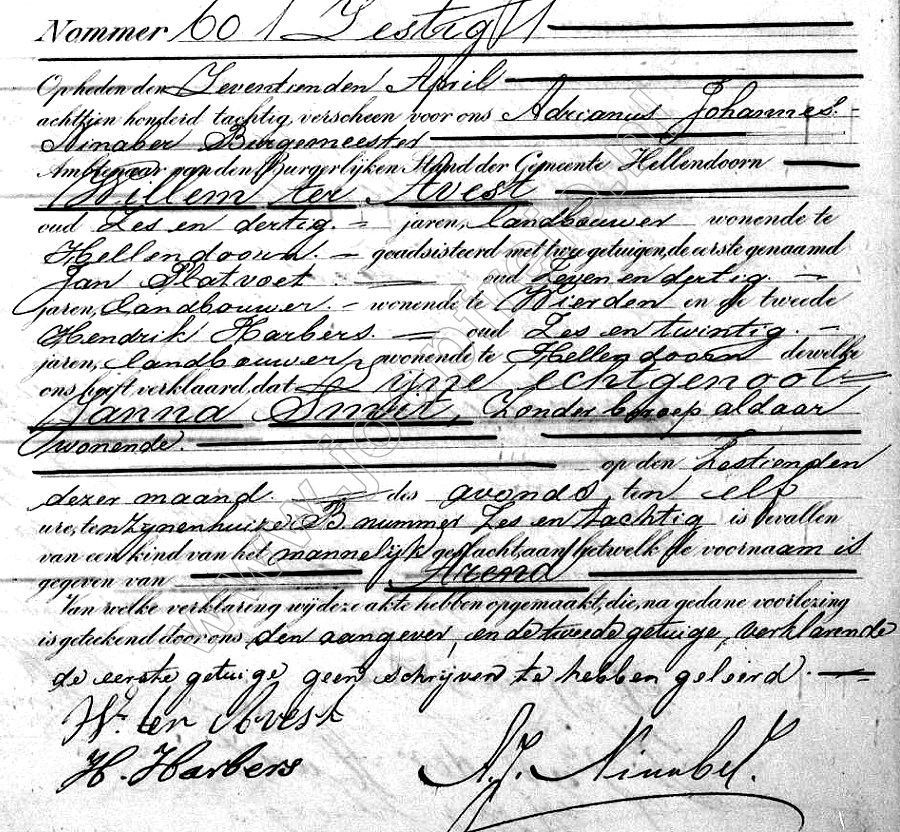 Nommer 60 / Zestig //
Op heden den Zeventienden April
achttien honderd tachtig, verscheen voor ons Adrianus Johannes
Ninaber Burgemeester
Ambtenaar van den Burgerlijken Stand der Gemeente Hellendoorn
Willem ter Avest
oud Zes en dertig. jaren, landbouwer wonende te
Hellendoorn. geadsisteerd met twee getuigen, de eerste genaamd
Jan Platvoet oud Zeven en dertig.
jaren, landbouwer wonende te Wierden en de tweede
Hendrik Harbers. oud Zes en twintig.
jaren, landbouwer, wonende te Hellendoorn dewelke
ons heeft verklaard, dat Zijne echtgenoot
Janna Smit, Zonder beroep aldaar
wonende.
op den Zestienden
dezer maand. des avonds ten elf
ure, ten Zijnen huize B nummer Zes en tachtig is bevallen
van een kind van het mannelijk geslacht, aan hetwelk de voornaam is
gegeven van Arend
Van welke verklaring wij deze akte hebben opgemaakt, die, na gedane voorlezing
is geteekend door ons, den aangever, en de tweede getuige, verklarende
de eerste getuige geen schrijven te hebben geleerd.
W. ter Avest
H. Harbers A.J. Ninaber.